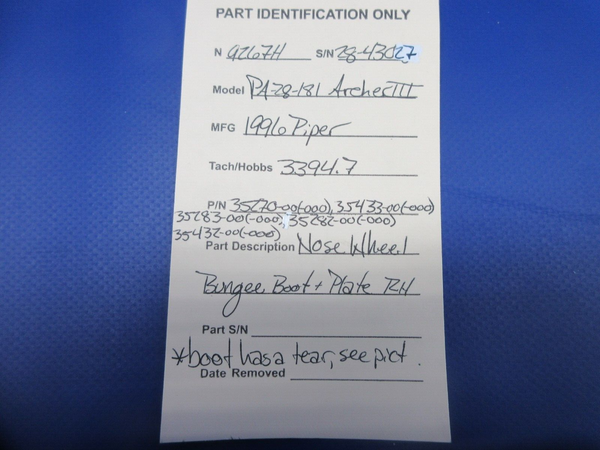 PART IDENTIFICATION ONLY
N 9267H S/N 28-43027
Model PA-28-181 Archer III
MFG 1996 Piper
Tach/Hobbs 3394.7
P/N 35270-00(-000), 35433-00(-000)
35283-00(-000), 35282-00(-000)
35432-00(-000)
Part Description Nose Wheel
Bungee Boot + Plate RH
Part S/N
*boot has a tear, see pict.
Date Removed